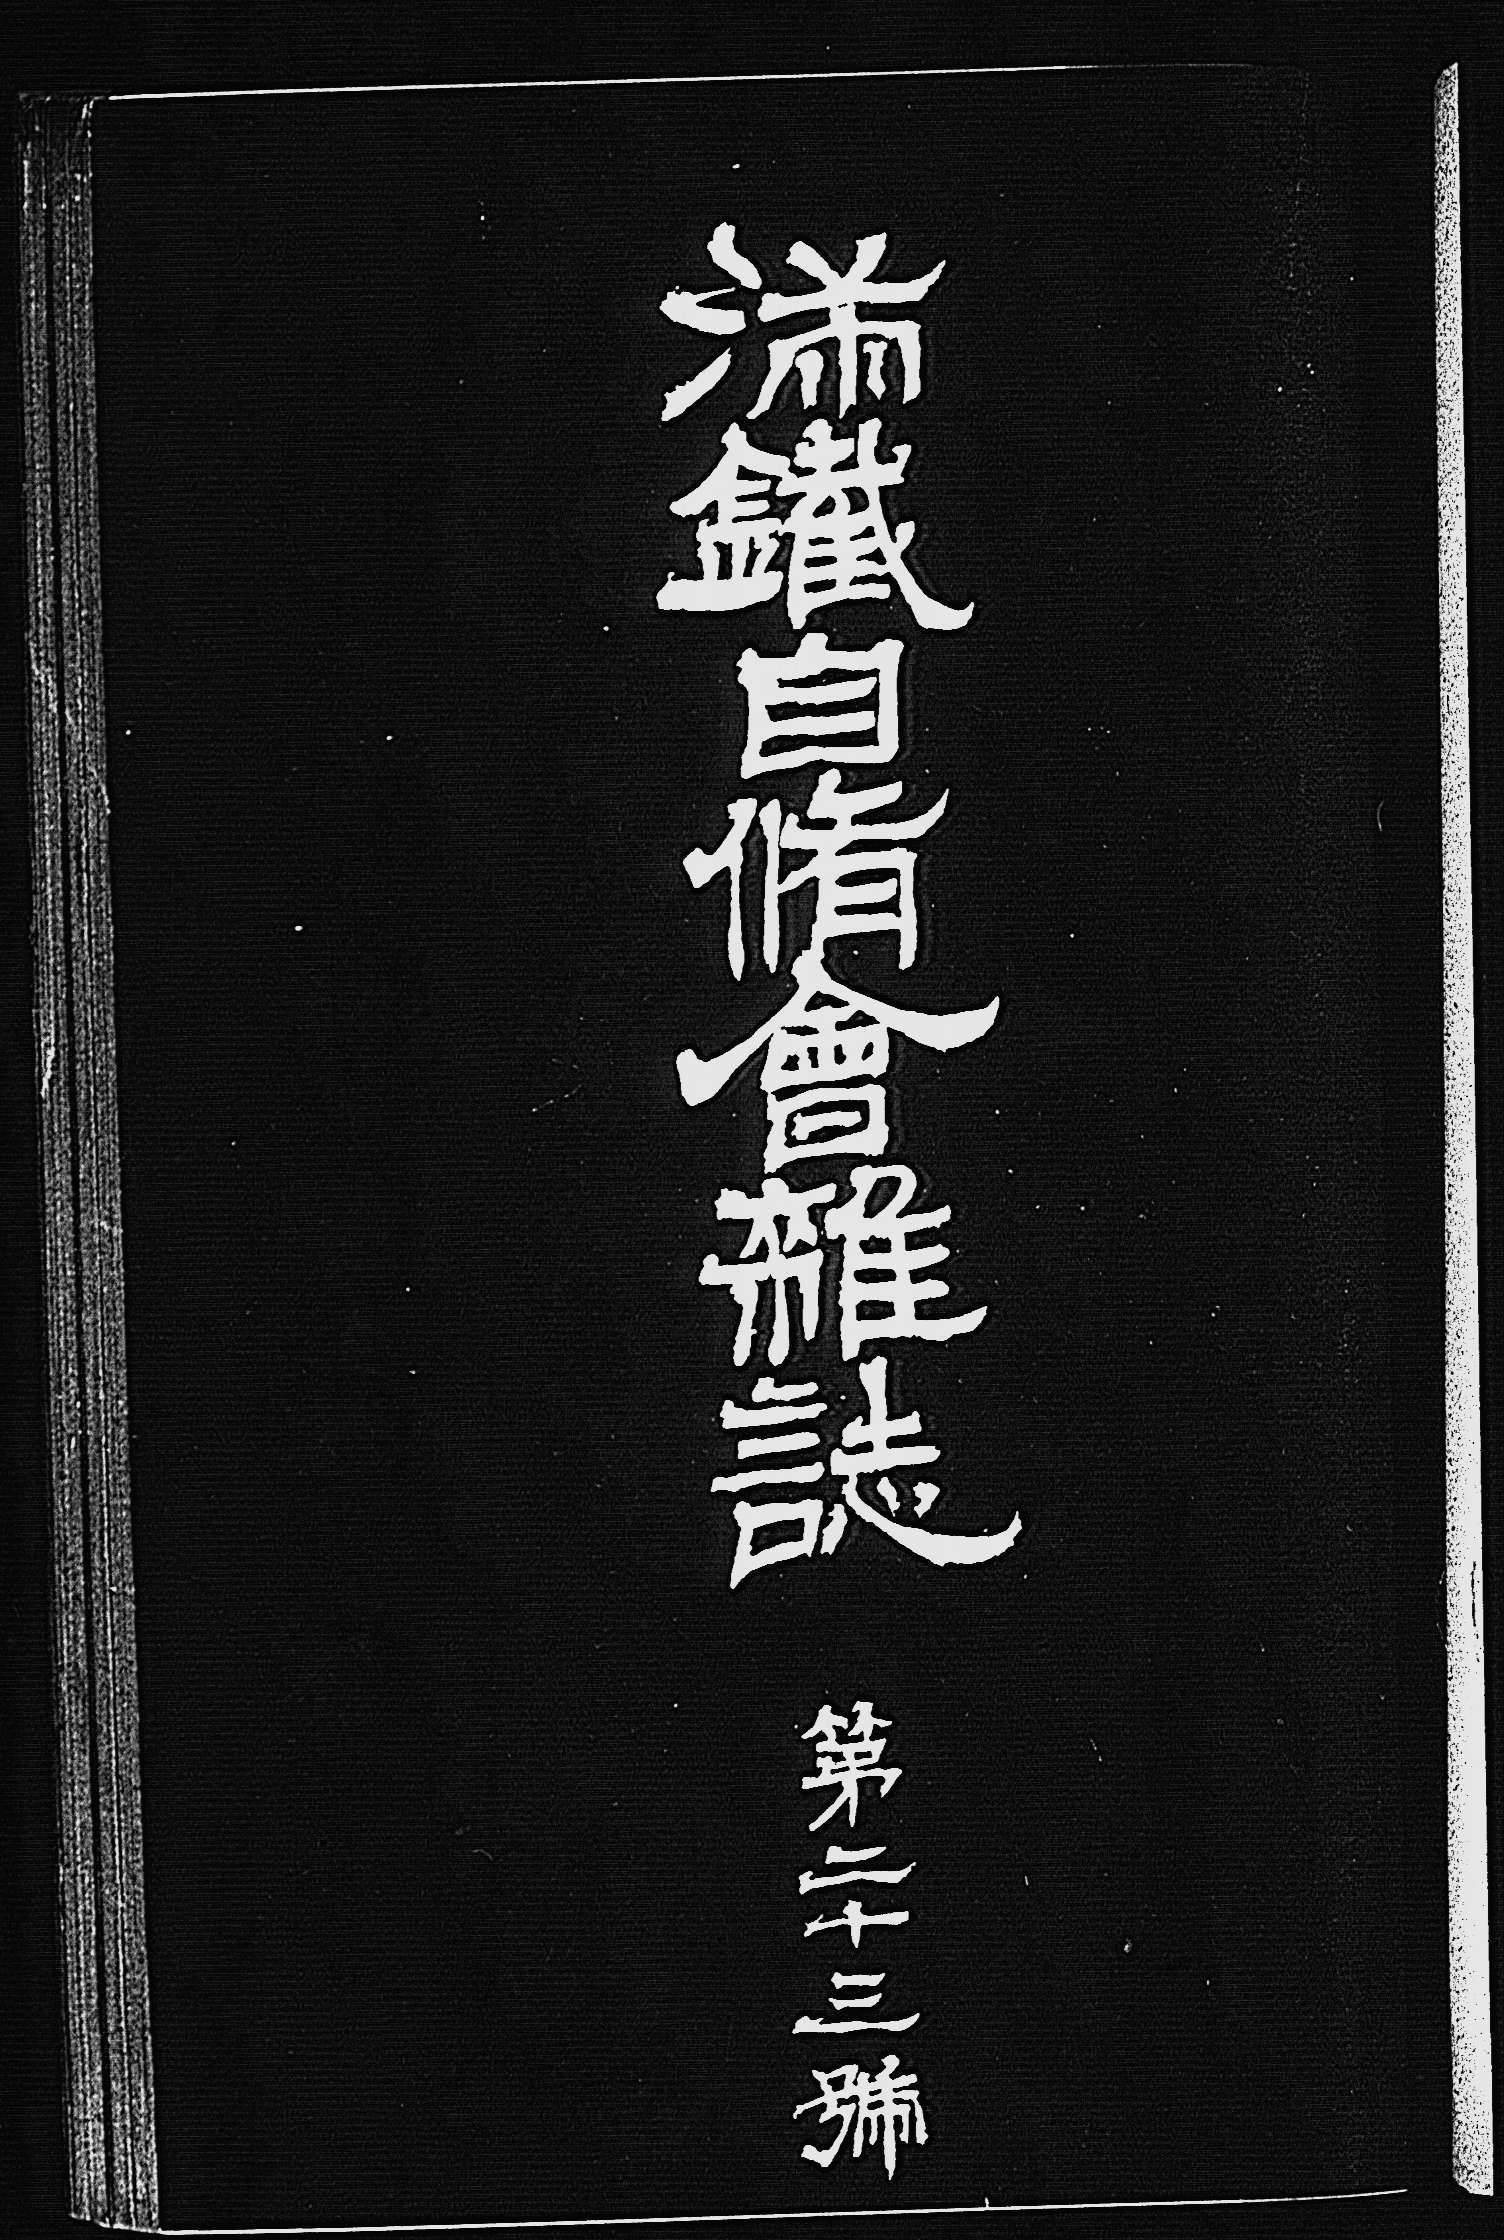 満鐵自脩會雜誌
第二十三號